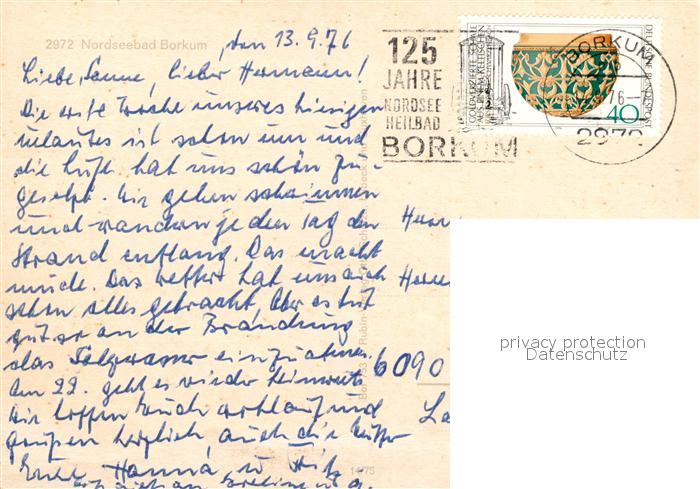 2972 Nordseebad Borkum
, den 13.9.76
Liebe Sanne, lieber Hermann!
Die erste Woche unseres hiesigen
Urlaubes ist schon um und
die Luft hat uns schön zu-
gesetzt. Wir gehen schwimmen
und wandern jeden Tag den
Strand entlang. Das macht
müde. Das Wetter hat uns auch
schon alles gebracht. Aber es tut
gut so an der Brandung
das Salzwasser einzuatmen.
Am 22. geht es wieder heimwärts
Wir hoffen Euch wohlauf und
grüßen herzlich, auch die Mutter
Eure Hanna u
125
JAHRE
NORDSEE
HEILBAD
BORKUM
GOLDVERZIERTE SCHALE
DEUTSCHE BUNDESPOST
40
BORKUM
76
2972
Herrn
6090
14/75
privacy protection
Datenschutz